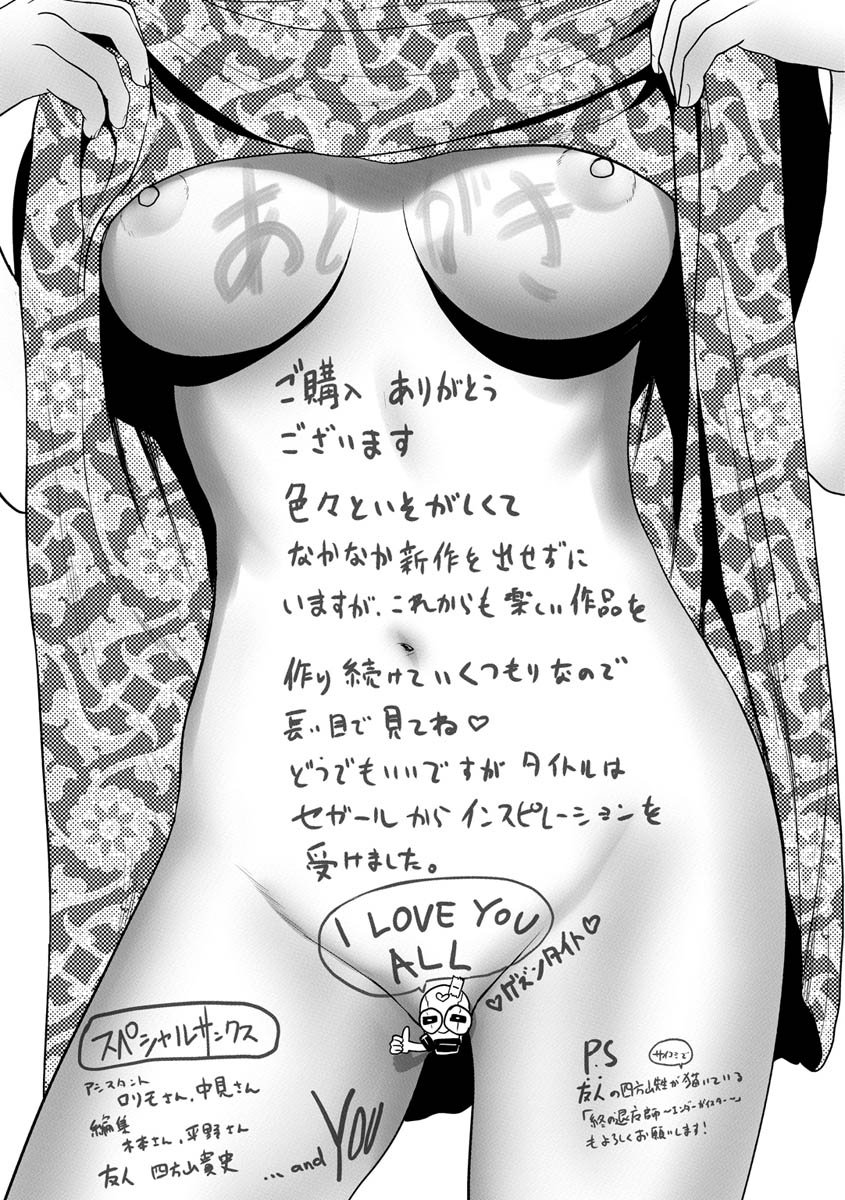 あとがき
ご購入 ありがとう
ございます
色々といそがしくて
なかなか新作を出せずに
いますが、これからも楽しい作品を
作り続けていくつもりなので
長い目で見てね♡
どうでもいいですが タイトルは
セガールから インスピレーションを
受けました。
I LOVE YOU
ALL
♡ゲズンタイト♡
スペシャルサンクス
アシスタント
ロリモさん、中見さん
編集
木本さん、平野さん
友人 四方山貴史
...and YOU
P.S
サイコミで
友人の四方山が描いている
「終の退魔師〜エンダーガイスター〜」
もよろしくお願いします!